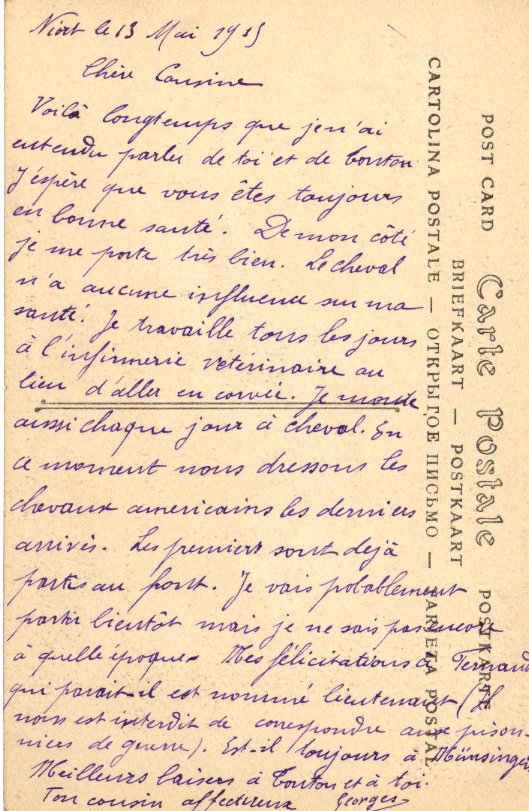 Niort le 13 Mai 1915
Chère Cousine
Voilà longtemps que je n'ai
entendu parler de toi et de Tonton
J'espère que vous êtes toujours
en bonne santé. De mon côté
je me porte très bien. Le cheval
n'a aucune influence sur ma
santé. Je travaille tous les jours
à l'infirmerie vétérinaire au
lieu d'aller en corvée. Je monte
aussi chaque jour à cheval. En
ce moment nous dressons les
chevaux americains les derniers
arrivés. Les premiers sont dejà
partis au front. Je vais probablement
partir bientôt mais je ne sais pas encore
à quelle époque. Mes félicitations à Fernand
qui parait-il est nommé lieutenant (Il
nous est interdit de correspondre aux prison-
niers de guerre). Est-il toujours à Münsingen
Meilleurs baisers à Tonton et à toi.
Ton cousin affectueux Georges
CARTOLINA POSTALE — ОТКРЫТОЕ ПИСЬМО — TARJETA POSTAL
BRIEFKAART — POSTKAART
POST CARD Carte Postale POSTKARTE